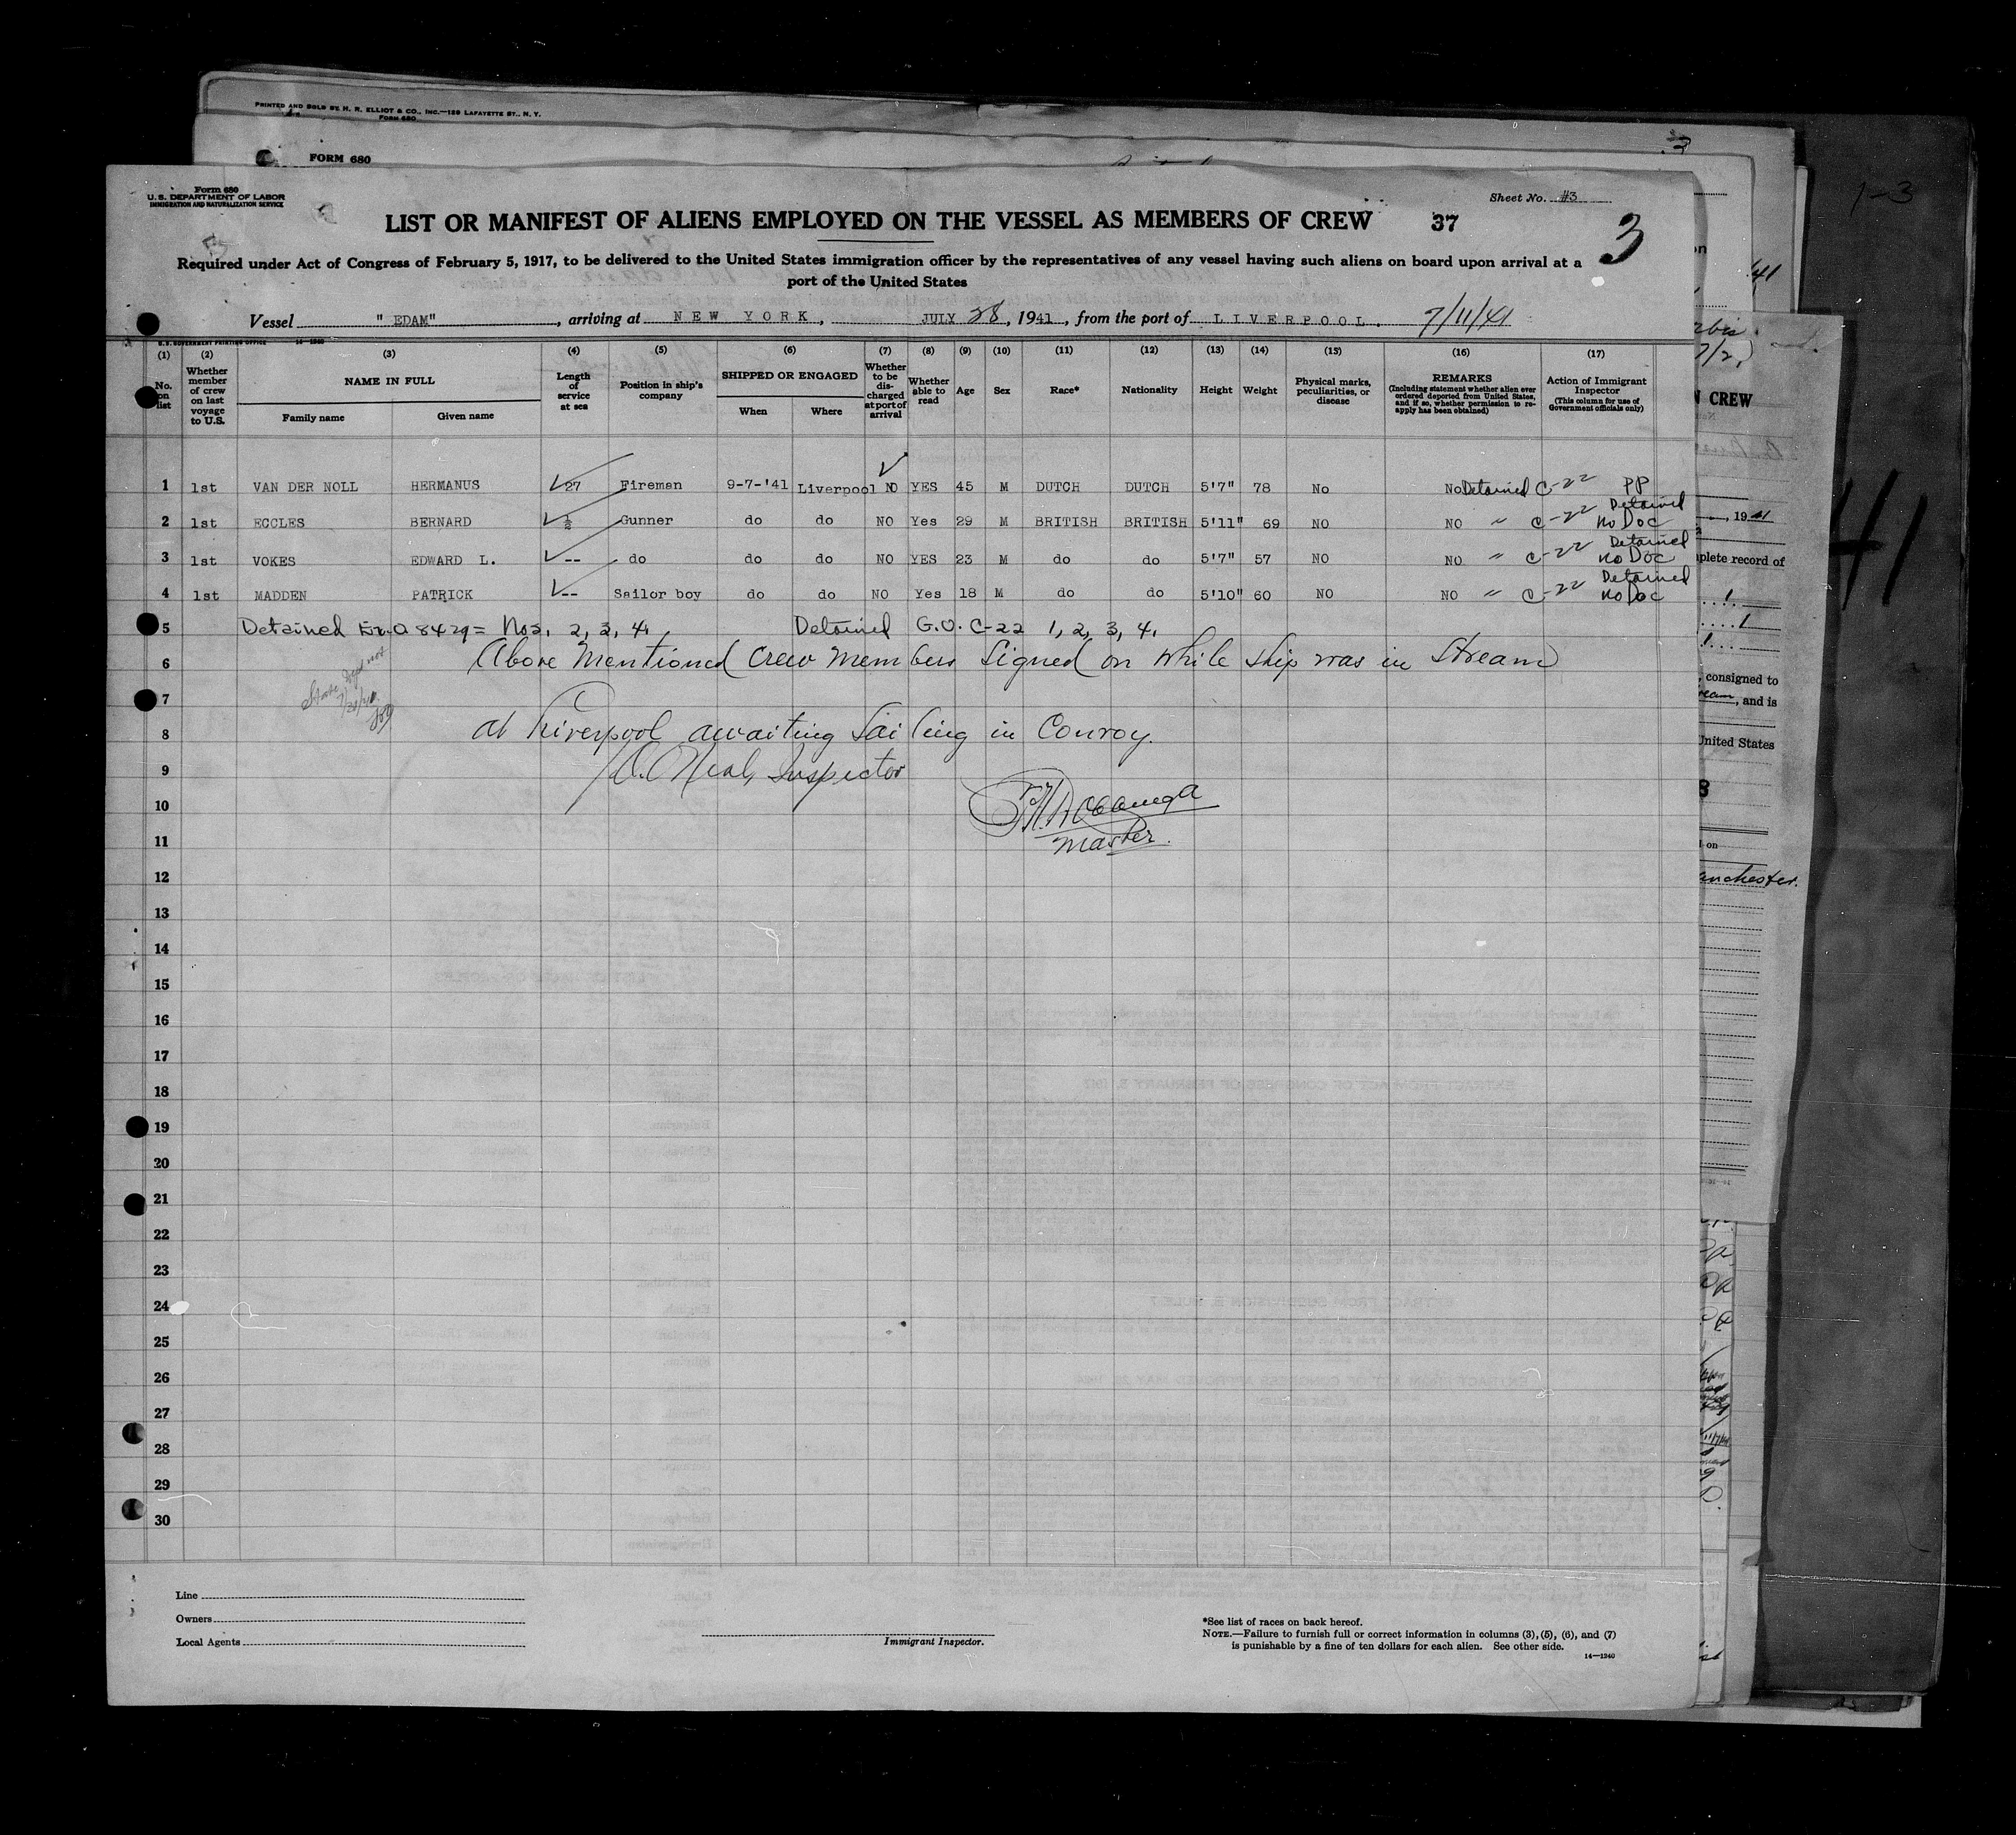 PRINTED AND SOLD BY H. R. ELLIOT & CO., INC.—129 LAFAYETTE ST., N. Y.
Form 680
FORM 680
Form 680
U. S. DEPARTMENT OF LABOR
IMMIGRATION AND NATURALIZATION SERVICE
Sheet No. #3
LIST OR MANIFEST OF ALIENS EMPLOYED ON THE VESSEL AS MEMBERS OF CREW 37 3
Required under Act of Congress of February 5, 1917, to be delivered to the United States immigration officer by the representatives of any vessel having such aliens on board upon arrival at a
port of the United States
Vessel "EDAM", arriving at NEW YORK, JULY 28, 1941, from the port of LIVERPOOL. 7/11/41
U.S. GOVERNMENT PRINTING OFFICE 14—1240
(1) (2) (3) (4) (5) (6) (7) (8) (9) (10) (11) (12) (13) (14) (15) (16) (17)
No. on list
Whether member of crew on last voyage to U.S.
NAME IN FULL
Family name
Given name
Length of service at sea
Position in ship's company
SHIPPED OR ENGAGED
When
Where
Whether to be discharged at port of arrival
Whether able to read
Age
Sex
Race*
Nationality
Height
Weight
Physical marks, peculiarities, or disease
REMARKS
(Including statement whether alien ever ordered deported from United States, and if so, whether permission to reapply has been obtained)
Action of Immigrant Inspector
(This column for use of Government officials only)
1 1st VAN DER NOLL HERMANUS 27 Fireman 9-7-'41 Liverpool NO YES 45 M DUTCH DUTCH 5'7" 78 No No Detained C-22 PP
2 1st ECCLES BERNARD ½ Gunner do do NO Yes 29 M BRITISH BRITISH 5'11" 69 NO NO " C-22 Detained No Doc
3 1st VOKES EDWARD L. -- do do do NO YES 23 M do do 5'7" 57 NO NO " C-22 Detained No Doc
4 1st MADDEN PATRICK -- Sailor boy do do NO Yes 18 M do do 5'10" 60 NO NO " C-22 Detained No Doc
5 Detained 8429 = Nos. 2, 3, 4. Detained G.O. C-22 1, 2, 3, 4.
6 Above Mentioned Crew Members Signed on while ship was in Stream
7
8 at Liverpool awaiting Sailing in Convoy.
9 Inspector
10
11 Master.
12
13
14
15
16
17
18
19
20
21
22
23
24
25
26
27
28
29
30
Line
Owners
Local Agents
Immigrant Inspector.
*See list of races on back hereof.
NOTE.—Failure to furnish full or correct information in columns (3), (5), (6), and (7)
is punishable by a fine of ten dollars for each alien. See other side.
14—1240
1-3
41
CREW
, 1941
plete record of
, consigned to
, and is
United States
anchester.